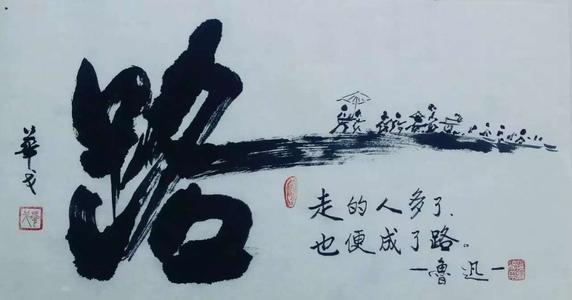 路
走的人多了、
也便成了路。
—鲁迅—
華戈